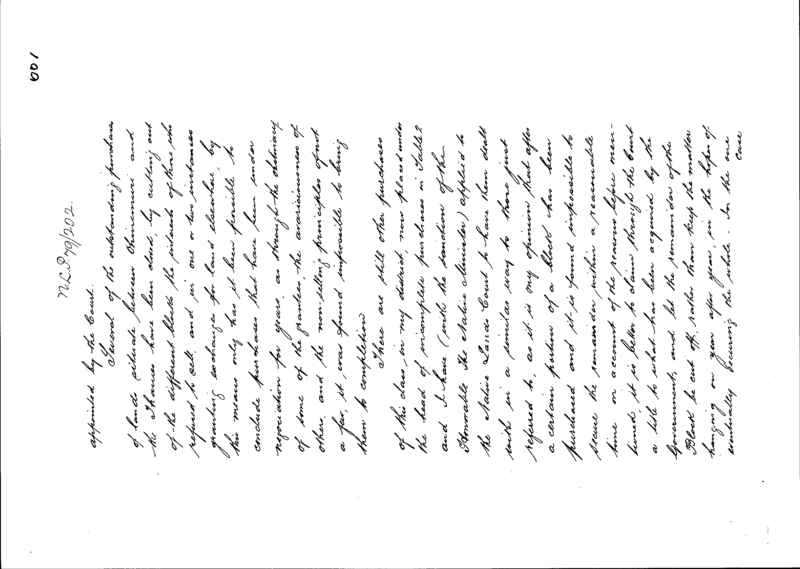 601
N.L.P 79/202.
appointed by the Court.
Several of the outstanding purchases
of lands situate between Ohinemuri and
the Thames have been dealt by cutting out
of the different blocks the interests of those who
refused to sell, and in one or two instances
granting exchanges for land elsewhere, by
this means only has it been possible to
conclude purchases that have been under
negotiation for years, as through the obstinacy
of some of the grantees, the avariciousness of
others, and the non selling principles of not
a few, it was found impossible to bring
them to completion
There are still other purchases
of this class, in my district, now placed under
the head of incomplete purchases in Table 2
and I have (with the sanction of the
Honorable the Native Minister) applied to
the Native Lands Court to have them dealt
with in a similar way to those just
referred to, as it is my opinion that after
a certain portion of a block has been
purchased and it is found impossible to
secure the remainder within a reasonable
time on account of the reasons before men-
tioned, it is better to claim through the Court
a title to what has been acquired by the
Government, and let the remainder of the
Block be cut off, rather than keep the matter
hanging on year after year, in the hopes of
eventually securing the whole. In the one
case